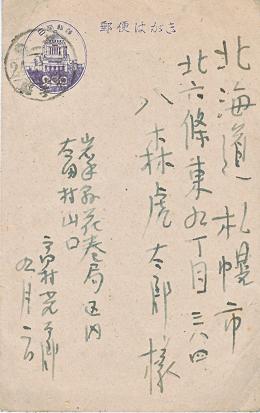 郵便はがき
北海道札幌市
北六條東九丁目三八四
八森虎太郎様
岩手縣花巻局区内
太田村山口
高村光太郎
九月一日